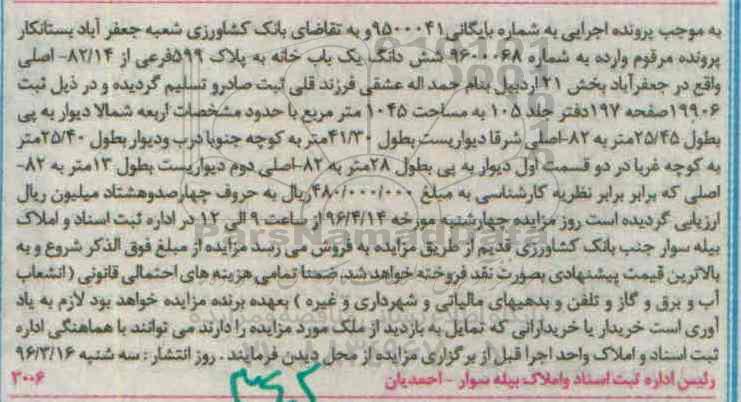 به موجب پرونده اجرایی به شماره بایگانی ۹۵۰۰۰۴۱و به تقاضای بانک کشاورزی شعبه جعفر آباد بستانکار
پرونده مرقوم وارده به شماره ۹۶۰۰۰۶۸ شش دانگ یک باب خانه به پلاک ۵۹۹فرعی از ۸۲/۱۴- اصلی
واقع در جعفرآباد بخش ۲۱ اردبیل بنام حمد اله عشقی فرزند قلی ثبت صادرو تسلیم گردیده و در ذیل ثبت
۱۹۹۰۶صفحه ۱۹۷دفتر جلد ۱۰۵ به مساحت ۱۰۴۵ متر مربع با حدود مشخصات اربعه شمالا دیوار به پی
بطول ۲۵/۴۵متر به ۸۲-اصلی شرقا دیواریست بطول ۴۱/۳۰متر به کوچه جنوبا درب ودیوار بطول ۲۵/۴۰متر
به کوچه غربا در دو قسمت اول دیوار به پی بطول ۲۸متر به ۸۲-اصلی دوم دیواریست بطول ۱۳متر به ۸۲-
اصلی که برابر برابر نظریه کارشناسی به مبلغ ۴۸۰/۰۰۰/۰۰۰ریال به حروف چهارصدوهشتاد میلیون ریال
ارزیابی گردیده است روز مزایده چهارشنبه مورخه ۹۶/۴/۱۴ از ساعت ۹ الی ۱۲ در اداره ثبت اسناد و املاک
بیله سوار جنب بانک کشاورزی قدیم از طریق مزایده به فروش می رسد مزایده از مبلغ فوق الذکر شروع و به
بالاترین قیمت پیشنهادی بصورت نقد فروخته خواهد شد. ضمنا تمامی هزینه های احتمالی قانونی ( انشعاب
آب و برق و گاز و تلفن و بدهیهای مالیاتی و شهرداری و غیره ) بعهده برنده مزایده خواهد بود لازم به یاد
آوری است خریدار یا خریدارانی که تمایل به بازدید از ملک مورد مزایده را دارند می توانند با هماهنگی اداره
ثبت اسناد و املاک واحد اجرا قبل از برگزاری مزایده از محل دیدن فرمایند . روز انتشار : سه شنبه ۹۶/۳/۱۶
رئیس اداره ثبت اسناد واملاک بیله سوار - احمدیان ۳۰۰۶
ParsNamadData